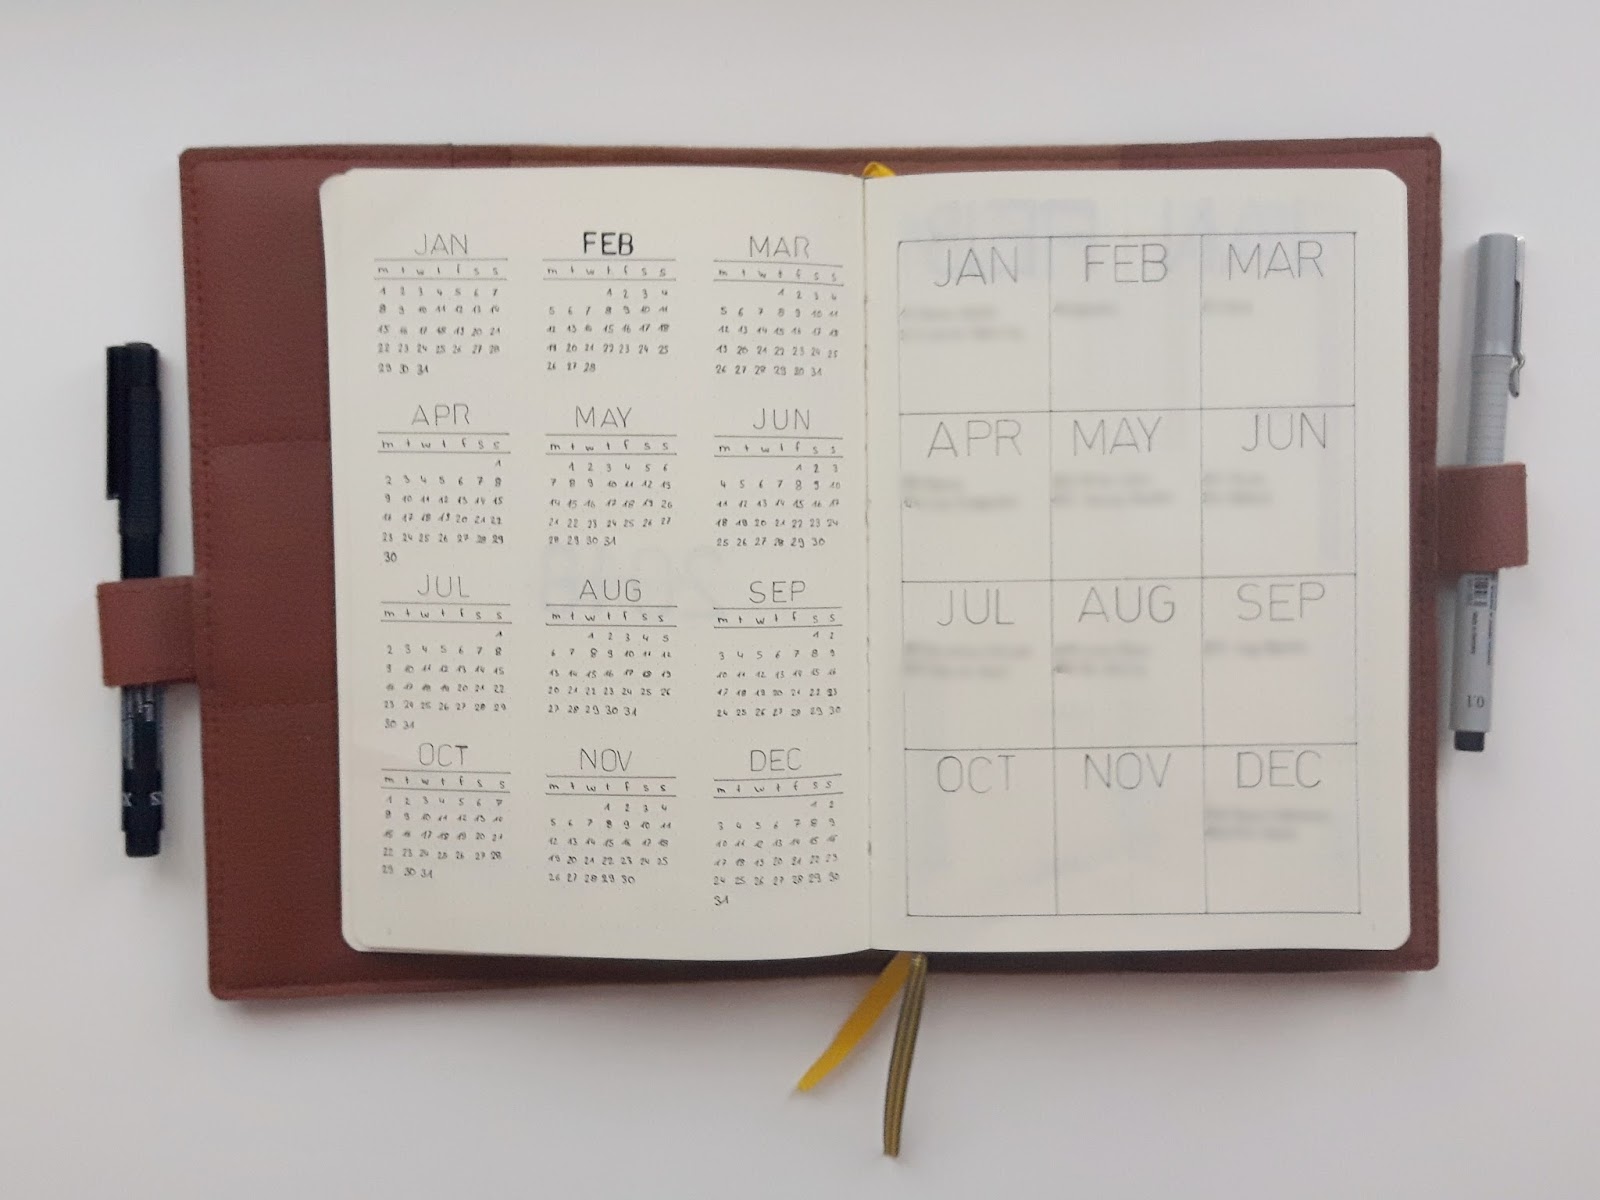 JAN
m t w t f s s
1 2 3 4 5 6 7
8 9 10 11 12 13 14
15 16 17 18 19 20 21
22 23 24 25 26 27 28
29 30 31
FEB
m t w t f s s
1 2 3 4
5 6 7 8 9 10 11
12 13 14 15 16 17 18
19 20 21 22 23 24 25
26 27 28
MAR
m t w t f s s
1 2 3 4
5 6 7 8 9 10 11
12 13 14 15 16 17 18
19 20 21 22 23 24 25
26 27 28 29 30 31
APR
m t w t f s s
1
2 3 4 5 6 7 8
9 10 11 12 13 14 15
16 17 18 19 20 21 22
23 24 25 26 27 28 29
30
MAY
m t w t f s s
1 2 3 4 5 6
7 8 9 10 11 12 13
14 15 16 17 18 19 20
21 22 23 24 25 26 27
28 29 30 31
JUN
m t w t f s s
1 2 3
4 5 6 7 8 9 10
11 12 13 14 15 16 17
18 19 20 21 22 23 24
25 26 27 28 29 30
JUL
m t w t f s s
1
2 3 4 5 6 7 8
9 10 11 12 13 14 15
16 17 18 19 20 21 22
23 24 25 26 27 28 29
30 31
AUG
m t w t f s s
1 2 3 4 5
6 7 8 9 10 11 12
13 14 15 16 17 18 19
20 21 22 23 24 25 26
27 28 29 30 31
SEP
m t w t f s s
1 2
3 4 5 6 7 8 9
10 11 12 13 14 15 16
17 18 19 20 21 22 23
24 25 26 27 28 29 30
OCT
m t w t f s s
1 2 3 4 5 6 7
8 9 10 11 12 13 14
15 16 17 18 19 20 21
22 23 24 25 26 27 28
29 30 31
NOV
m t w t f s s
1 2 3 4
5 6 7 8 9 10 11
12 13 14 15 16 17 18
19 20 21 22 23 24 25
26 27 28 29 30
DEC
m t w t f s s
1 2
3 4 5 6 7 8 9
10 11 12 13 14 15 16
17 18 19 20 21 22 23
24 25 26 27 28 29 30
31
JAN FEB MAR
APR MAY JUN
JUL AUG SEP
OCT NOV DEC
0.1